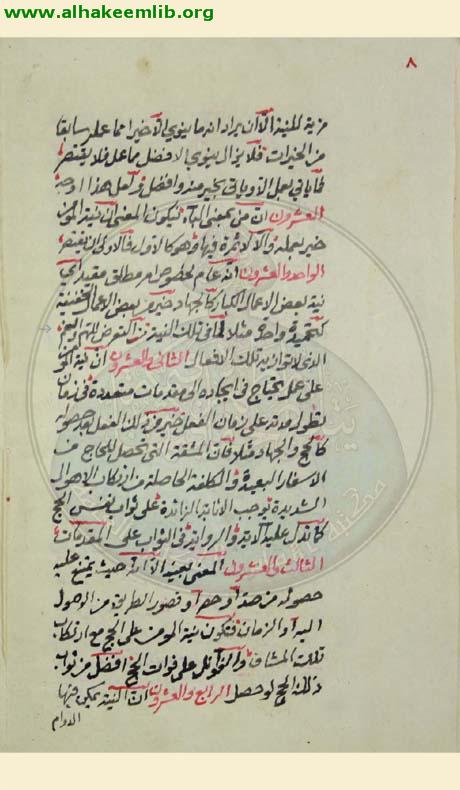 www.alhakeemlib.org
٨
مزية للنية الا ان يراد انه ما ينوي الاخير اما عمله سابقا
من الخيرات فلا يزال ينوي الافضل مما عمل فلا يقتصر
بل هذا اوجه
العشرون ان من بمعنى الباء فيكون المعنى ان نية المؤمن
خير بعمله والا لا ثمرة فيها وهو كالاول
الواحد والعشرون انه عام مخصوص او مطلق مقيد اي
نية بعض الاعمال الكبار كالجهاد خير من بعض الاعمال الخفيفة
كتحميدة واحدة مثلا لما في تلك النية من
الذي لا توازيه تلك الافعال الثاني والعشرون ان نية المؤمن
على عمل يحتاج في ايجاده الى مقدمات متعددة في زمان
تطول مدته على زمان الفعل خير من ذلك الفعل بعد حصوله
كالحج والجهاد مثلا فان المشقة التي تحصل للحاج من
الاسفار البعيدة والكلفة الحاصلة من ارتكاب الاهوال
الشديدة توجب الاثابة الزائدة على ثواب نفس الحج
كما تدل عليه الآية والرواية في الثواب على المقدمات
الثالث والعشرون المعنى بعينه الا انه حيث يمتنع عليه
حصوله من صد او حصر او قصور الطريق من الوصول
اليه او الزمان فتكون نية المؤمن على الحج مع ارتكاب
تلك المشاق على فوات الحج افضل من ثواب
ذلك الحج لو حصل الرابع والعشرون ان النية يمكن فيها
الدوام